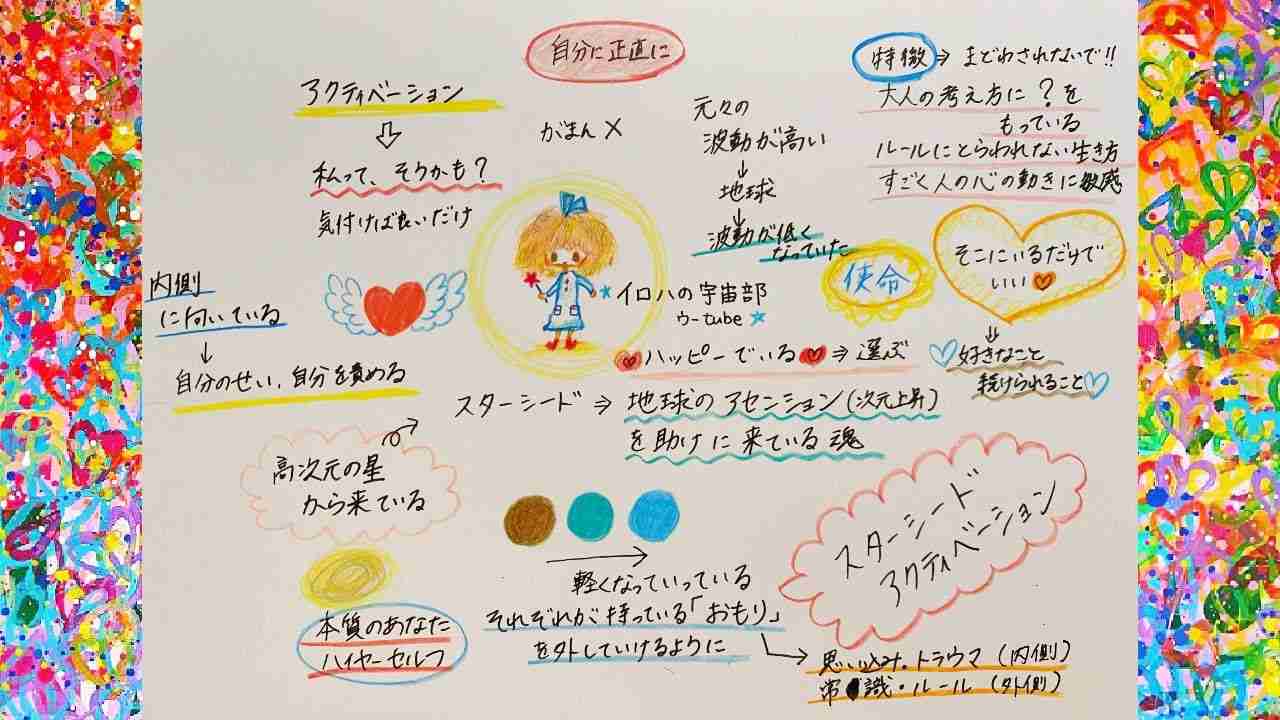 自分に正直に
アクティベーション
⇩
私って、そうかも?
気付けば良いだけ
がまん×
元々の
波動が高い
↓
地球
↓
波動が低く
なっていた
特徴⇒まどわされないで!!
大人の考え方に?を
もっている
ルールにとらわれない生き方
すごく人の心の動きに敏感
内側
に向いている
↓
自分のせい、自分を責める
イロハの宇宙部
ウーtube
使命
そこにいるだけで
いい
⇓
好きなこと
続けられること
ハッピーでいる⇒選ぶ
スターシード⇒地球のアセンション(次元上昇)
を助けに来ている魂
高次元の星
から来ている
本質のあなた
ハイヤーセルフ
軽くなっていっている
それぞれが持っている「おもり」
を外していけるように
スターシード
アクティベーション
思い込み・トラウマ(内側)
常識・ルール(外側)